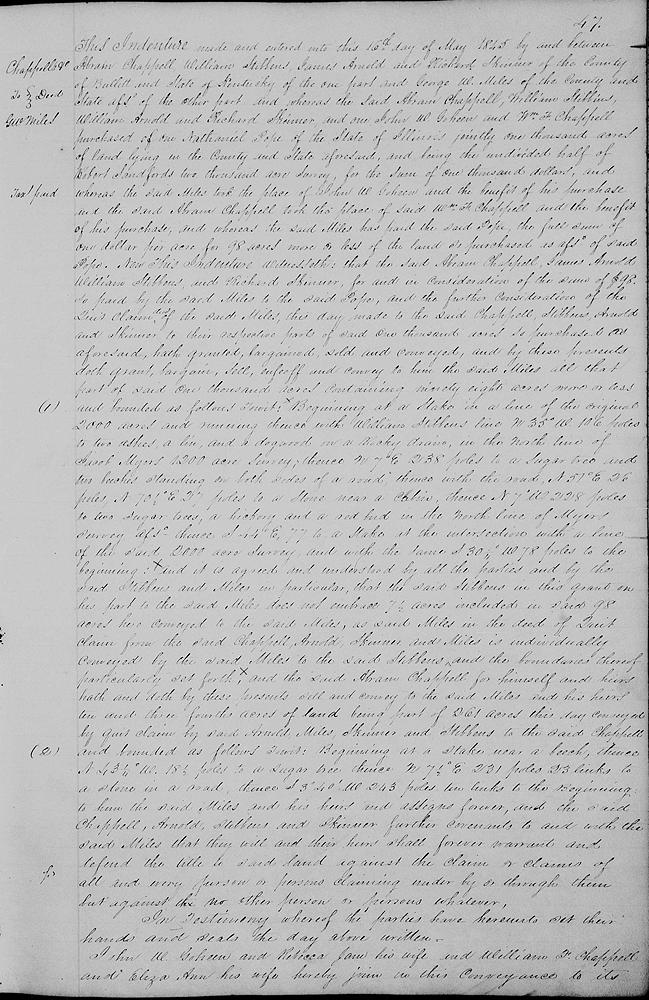 47.
Chappells &c
To } Deed
Geo Miles
Tax! paid
This Indenture made and entered into this 15th day of May 1845 by and between
Abram Chappell, William Stebbins, James Arnold and Richard Skinner of the County
of Bullitt and State of Kentucky of the one part and George W. Miles of the County and
State afsd of the other part and whereas the said Abram Chappell, William Stebbins,
William Arnold and Richard Skinner and one John W Goheen and Wm F Chappell
purchased of one Nathaniel Pope of the State of Illinois jointly one thousand acres
of land lying in the County and State aforesaid, and being the undivided half of
Robert Sandfords two thousand acre Survey, for the Sum of one thousand dollars, and
whereas the said Miles took the place of John W Goheen and the benefit of his purchase
and the said Abram Chappell took the place of said Wm F Chappell and the benefit
of his purchase, and whereas the said Miles has paid the said Pope, the full Sum of
one dollar per acre for 98 acres more or less of the land so purchased as afsd of said
Pope. Now This Indenture Witnesseth: that the said Abram Chappell, James Arnold
William Stebbins, and Richard Skinner, for and in consideration of the sum of $98.
so paid by the said Miles to the said Pope, and the further consideration of the
Quit Claim of the said Miles, this day made to the said Chappell, Stebbins Arnold
and Skinner to their respective parts of said one thousand acres so purchased as
aforesaid, hath granted, bargained, sold and conveyed, and by these presents
doth grant, bargain, Sell, enfeoff and convey to him the said Miles all that
part of said one thousand acres containing ninety eight acres more or less
(1) and bounded as follows towit: x Beginning at a Stake in a line of the original
2000 acres and running thence with William Stebbins line N 35° W 106 poles
to two ashes, a lin, and a dogwood in a Rocky drain, in the North line of
Jacob Myers 1200 acre Survey, thence N 7° E 238 poles to a Sugar tree and
two beeches standing on both sides of a road, thence with the road, N 51° E 26
poles, N 70½° E poles to a Stone near a Cabin, thence N 7° W 228 poles
to two Sugar trees, a hickory and a red bud in the North line of Myers
Survey afsd thence S 44° E, 77 to a Stake at the intersection with a line
of the said 2000 acre Survey, and with the same S 30½ W 78 poles to the
beginning: x and it is agreed and understood by all the parties and by the
said Stebbins and Miles in particular, that the said Stebbins in this grant on
his part to the said Miles does not embrace 7½ acres included in said 98
acres here conveyed to the said Miles, as said Miles in the deed of Quit
Claim from the said Chappell, Arnold, Skinner and Miles is individually
conveyed by the said Miles to the said Stebbins, and the boundaries thereof
particularly set forth, x and the said Abram Chappell for himself and heirs
hath and doth by these presents sell and convey to the said Miles and his heirs
ten and three fourths acres of land being part of 261 acres this day conveyed
by quit claim by said Arnold, Miles, Skinner and Stebbins to the said Chappell
(2) and bounded as follows towit: Beginning at a Stake near a beech, thence
N 43½° W. 18½ poles to a Sugar tree thence N 7½° E 231 poles 23 links to
a stone in a road, thence S 3° 40' W 243 poles ten links to the Beginning:
to him the said Miles and his heirs and assigns forever, and the said
Chappell, Arnold, Stebbins and Skinner further covenants to and with the
said Miles that they will and their heirs shall forever warrant and
defend the title to said land against the claim or claims of
all and every person or persons claiming under by or through them
but against the no other person or persons whatever,
In Testimony whereof the parties have hereunto set their
hands and seals the day above written.
John W. Goheen and Rebecca Jane his wife and William F. Chappell
and Eliza Ann his wife hereby join in this Conveyance to its